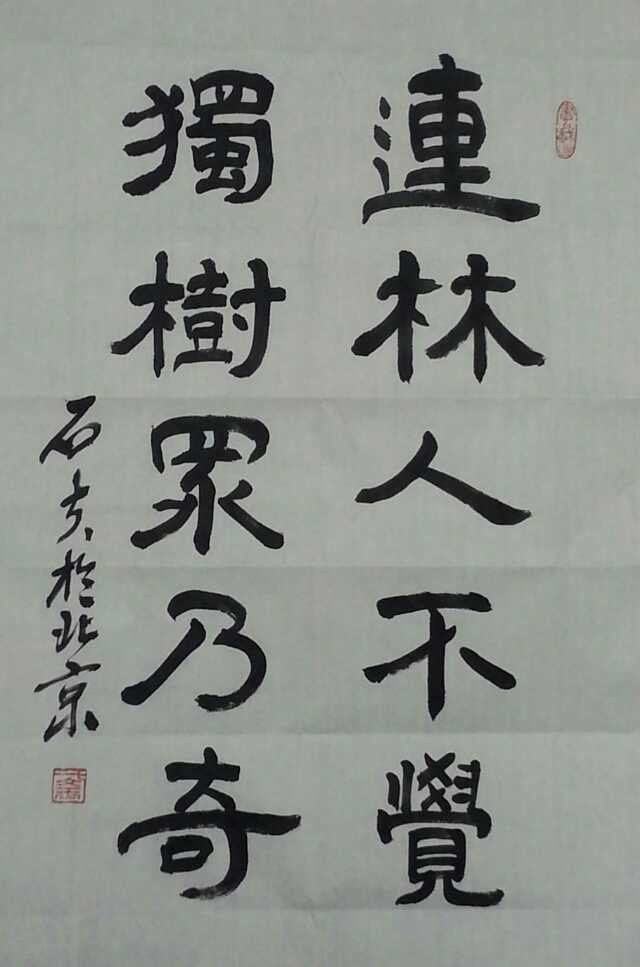 連林人不覺
獨樹眾乃奇
石文於北京